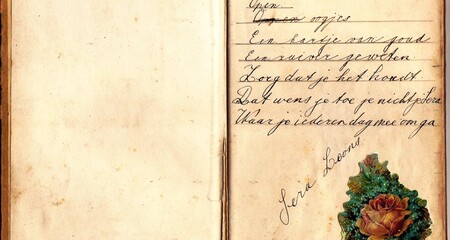 Open
Open oogjes
Een hartje van goud
Een zuiver geweten
Zorg dat je het houdt.
Dat wens je toe je nichtje Sera
Waar je iederen dag mee omga
Sera Loons